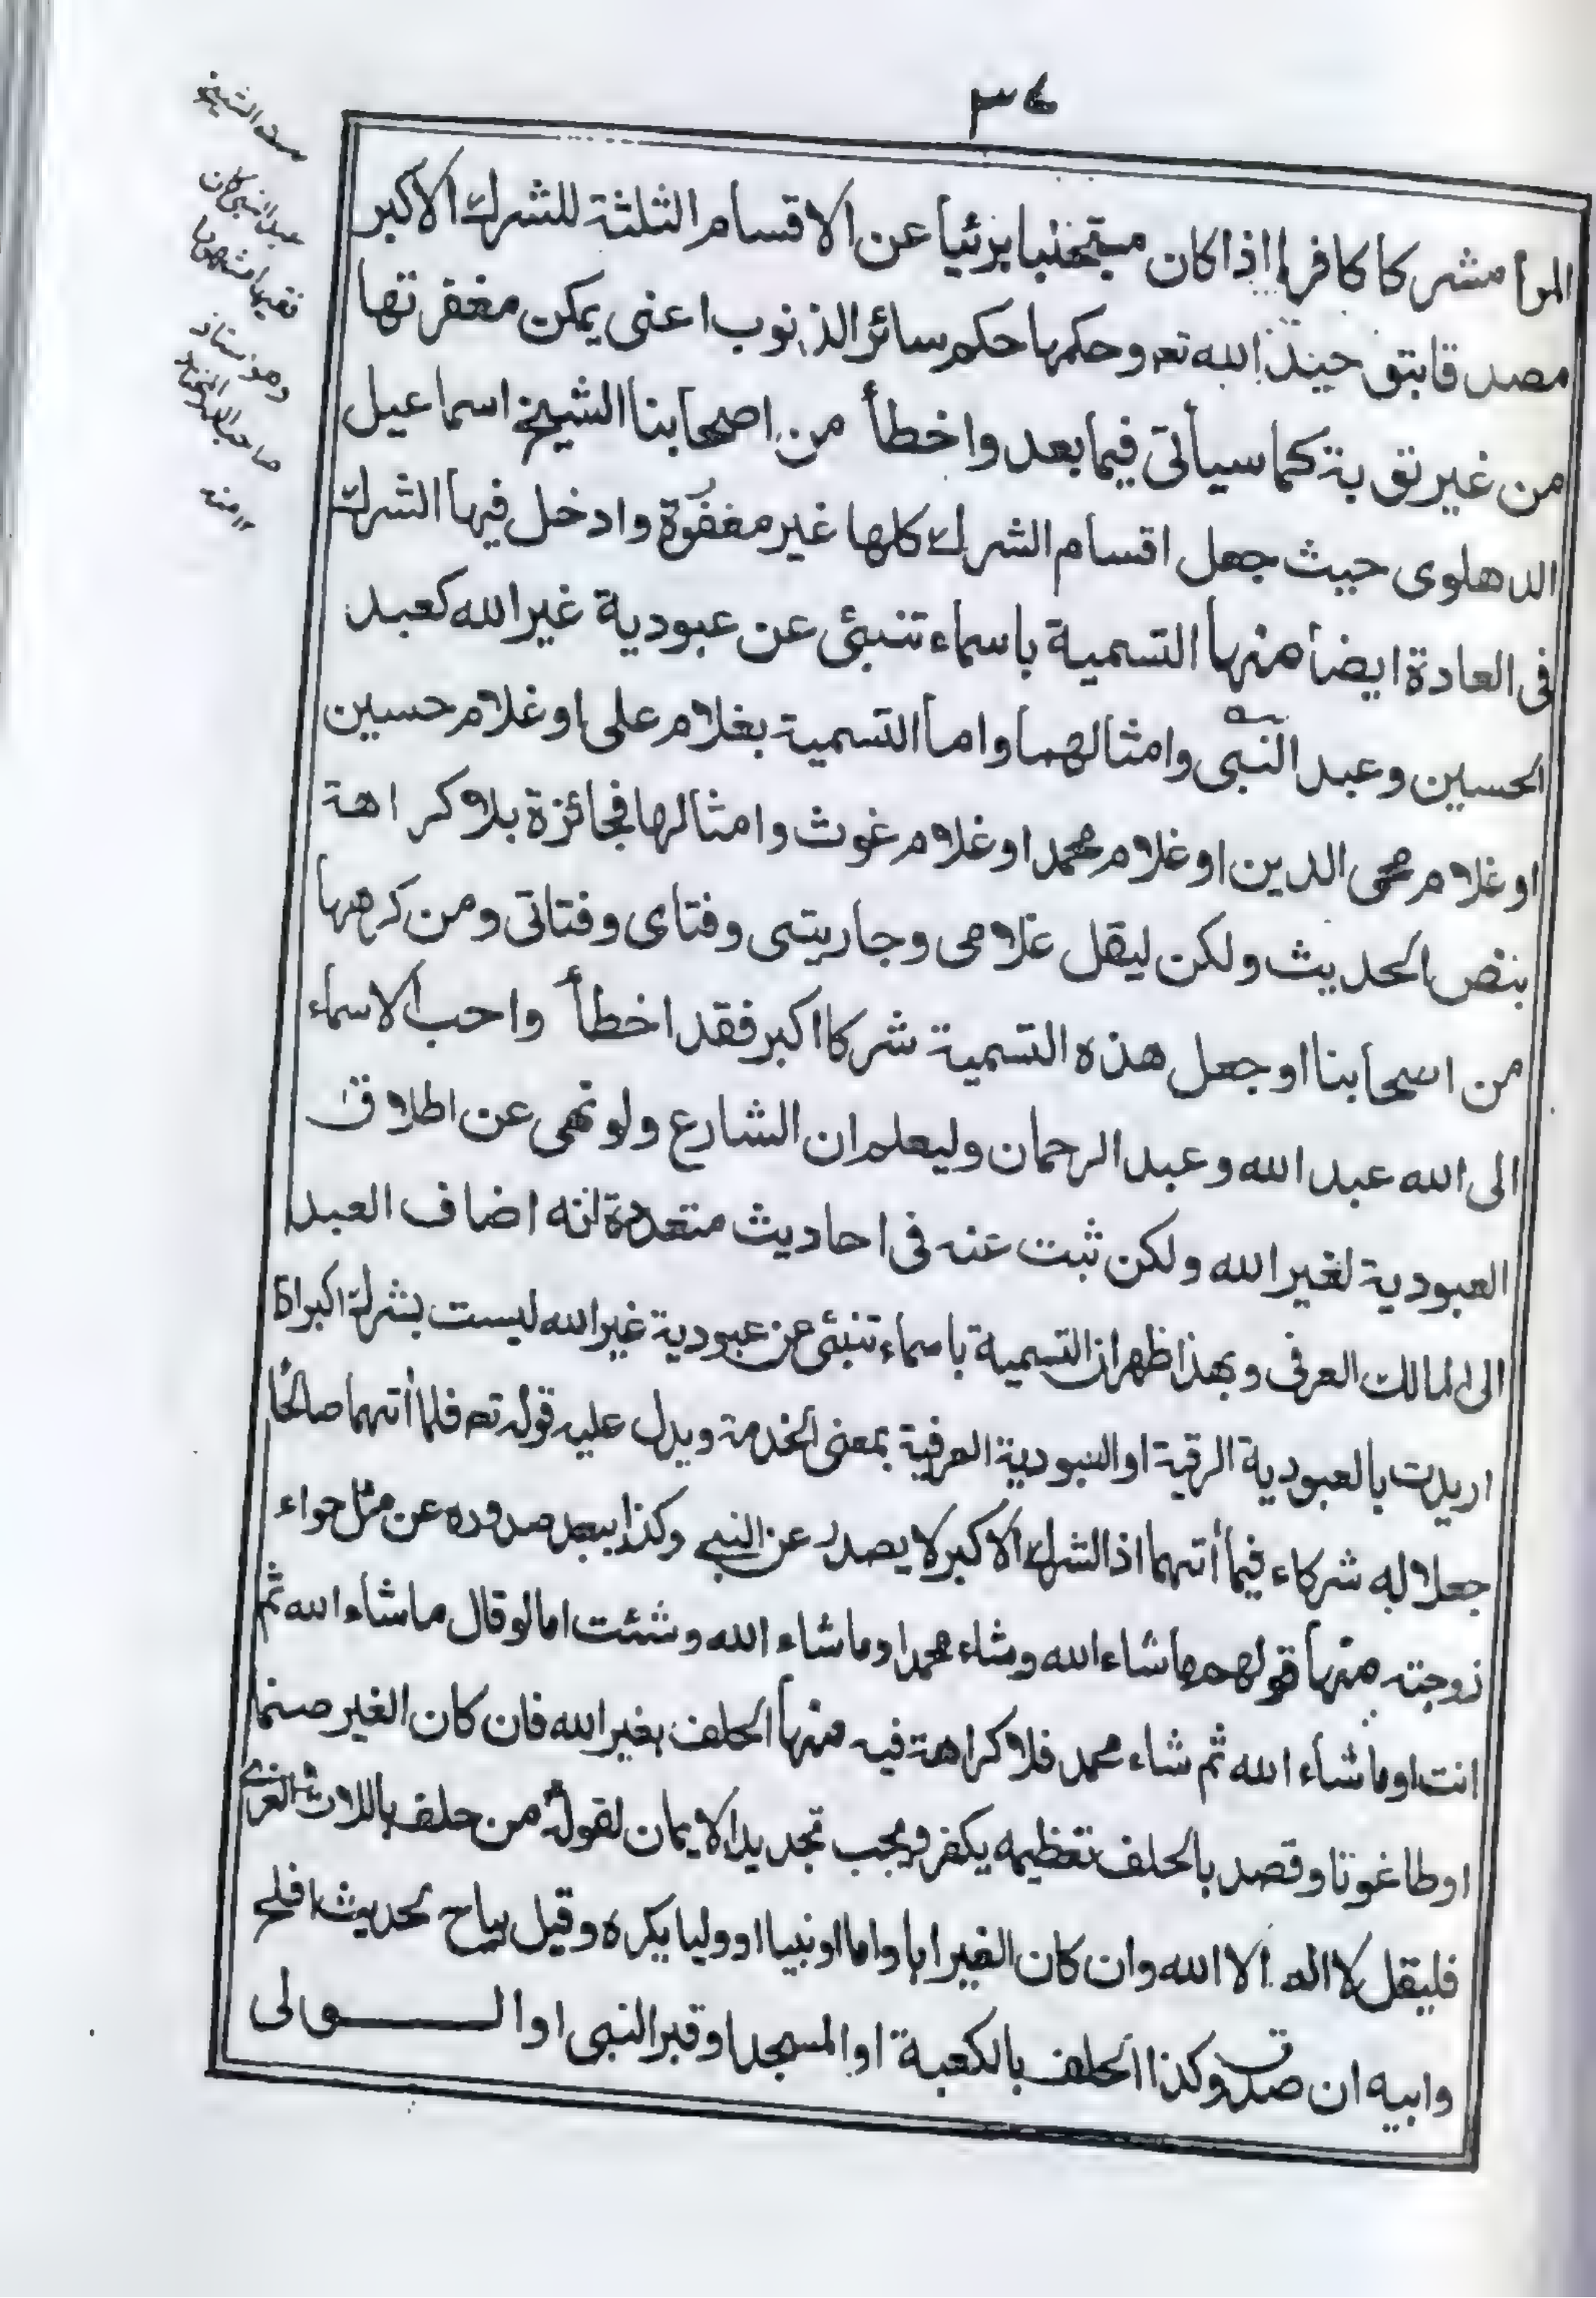 ٣٤
المرأ مشركا كافرا اذا كان مجتنبا بريئا عن الاقسام الثلثة للشرك الاكبر
مصدقا بتوحيد الله تعه وحكمها حكم سائر الذنوب اعنى يمكن مغفرتها
من غير توبة كما سيأتى فيما بعد واخطأ من اصحابنا الشيخ اسماعيل
الدهلوى حيث جعل اقسام الشرك كلها غير مغفورة وادخل فيها الشرك
فى العادة ايضا منها التسمية باسماء تنبئ عن عبودية غير الله كعبد
الحسين وعبد النبى وامثالهما واما التسمية بغلام على او غلام حسين
او غلام محى الدين او غلام محمد او غلام غوث وامثالها فجائزة بلا كراهة
بنص الحديث ولكن ليقل غلامى وجاريتى وفتاى وفتاتى ومن كرهها
من اصحابنا او جعل هذه التسمية شركا اكبر فقد اخطأ واحب الاسماء
الى الله عبد الله وعبد الرحمان وليعلم ان الشارع ولو نهى عن اطلاق
العبودية لغير الله ولكن ثبت عنه فى احاديث متعددة انه اضاف العبد
الى المالك العرفى وبهذا ظهر ان التسمية باسماء تنبئ عن عبودية غير الله ليست بشرك اكبر اذا
اريدت بالعبودية الرقية او العبودية العرفية بمعنى الخدمة ويدل عليه قوله تعه فلما أتهما صالحًا
جعلا له شركاء فيما أتهما اذ الشرك الاكبر لا يصدر عن النبى وكذا يبعد صدوره عن مثل حواء
زوجته منها قولهم ما شاء الله وشاء محمد او ما شاء الله وشئت اما لو قال ما شاء الله ثم
انت او ما شاء الله ثم شاء محمد فلا كراهة فيه منها الحلف بغير الله فان كان الغير صنما
او طاغوتا وقصد بالحلف تعظيمه يكفر ويجب تجديد الايمان لقوله من حلف باللات والعزى
فليقل لا اله الا الله وان كان الغير ابا واما او نبيا او وليا يكره وقيل يباح لحديث افلح
وابيه ان صدق وكذا الحلف بالكعبة او المسجد او قبر النبى او الـــولى
عبد النبى كان
فقيها مشهورا
وهو استاذ
صاحب الدر المختار
١٢ منه